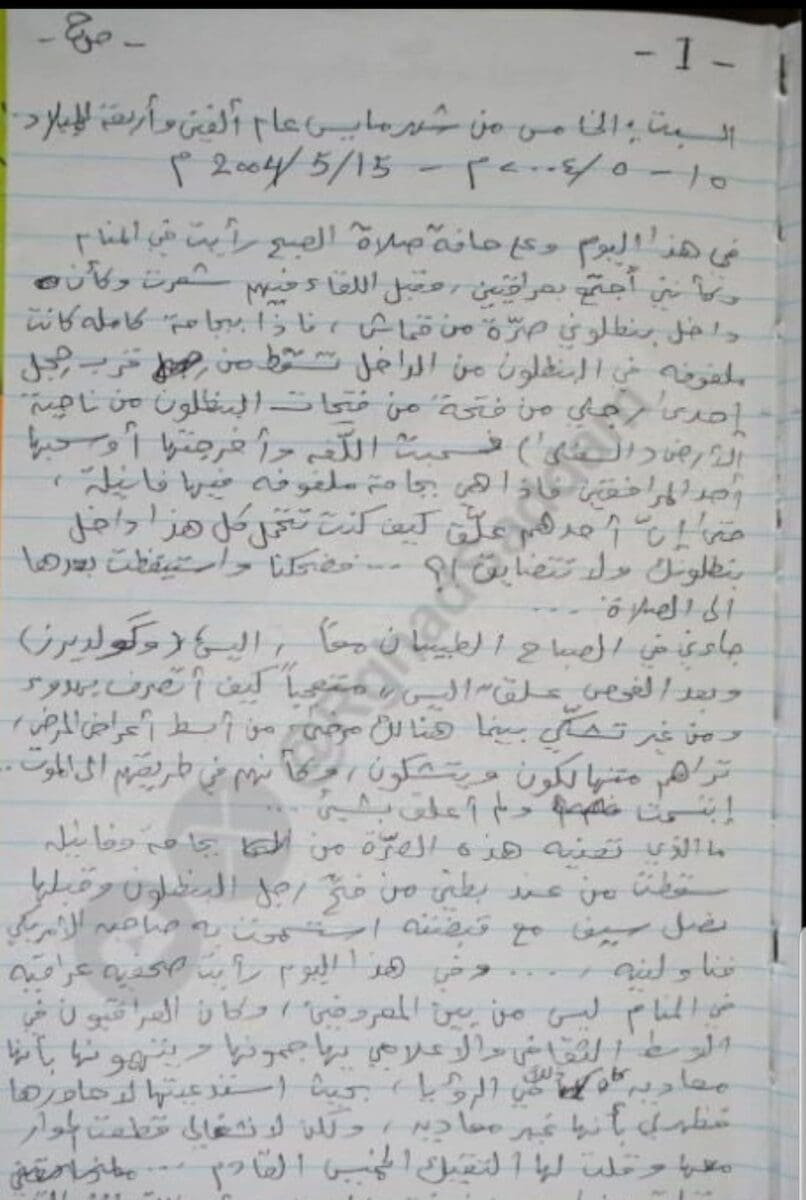 - 1 -
السبت: الخامس من شهر مايس عام ألفين وأربعة للميلاد.
١٥ - ٥ / ٢٠٠٤ م - 2004/5/15 م
في هذا اليوم وعلى حافة صلاة الصبح رأيت في المنام
وكأنني أجتمع بعراقيين، وقبل اللقاء فيهم شعرت وكأن
داخل بنطلوني صرّة من قماش، فاذا بيجامة كامله كانت
ملفوفه في البنطلون من الداخل تسقط من قرب رجل
إحدى رجلي من فتحة من فتحات البنطلون من ناحية
الأرض (السفلى) فسحبت اللّفه وأخرجتها أو سحبها
أحد المرافقين فاذا هي بجامة ملفوفه فيها فانيلة،
حتى إنّ أحدهم علّق كيف كنت تتحمل كل هذا داخل
بنطلونك ولا تتضايق !؟ ... فضحكنا واستيقظت بعدها
الى الصلاة ...
جاءني في الصباح الطبيبان معاً، اليس (وكولديرز)
وبعد الفحص علق اليس، متعجباً كيف أتصرف بهدوء
ومن غير تشكّي بينما هنالك مرضى، من أبسط أعراض المرض،
تراهم متهالكون ويتشكون، وكأنهم في طريقهم الى الموت..
إبتسمت ولم أعلق بشيئ ...
ما الذي تعنيه هذه الصرّة من بجامة وفانيله
سقطت من عند بطني من فتح رجل البنطلون وقبلها
نصل سيف مع قبضته استسمحت به صاحبه الأمريكي
فناولنيه ، .... وفي هذا اليوم رأيت صحفيه عراقيه
في المنام ليس من بين المعروفين، وكان العراقيون في
الوسط الثقافي والاعلامي يهاجمونها ويتهمونها بأنها
معاديه في الرؤيا، بحيث استدعيتها لاحاورها
فظهر لي بأنها غير معاديه، ولكن لانشغالي قطعت الحوار
معها وقلت لها ألتقيك الخميس القادم ...